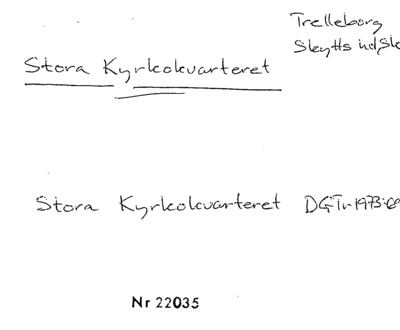 Trelleborg
Skytts hd, Sk
Stora Kyrkokvarteret
Stora Kyrkokvarteret DGTr 1973:6
Nr 22035